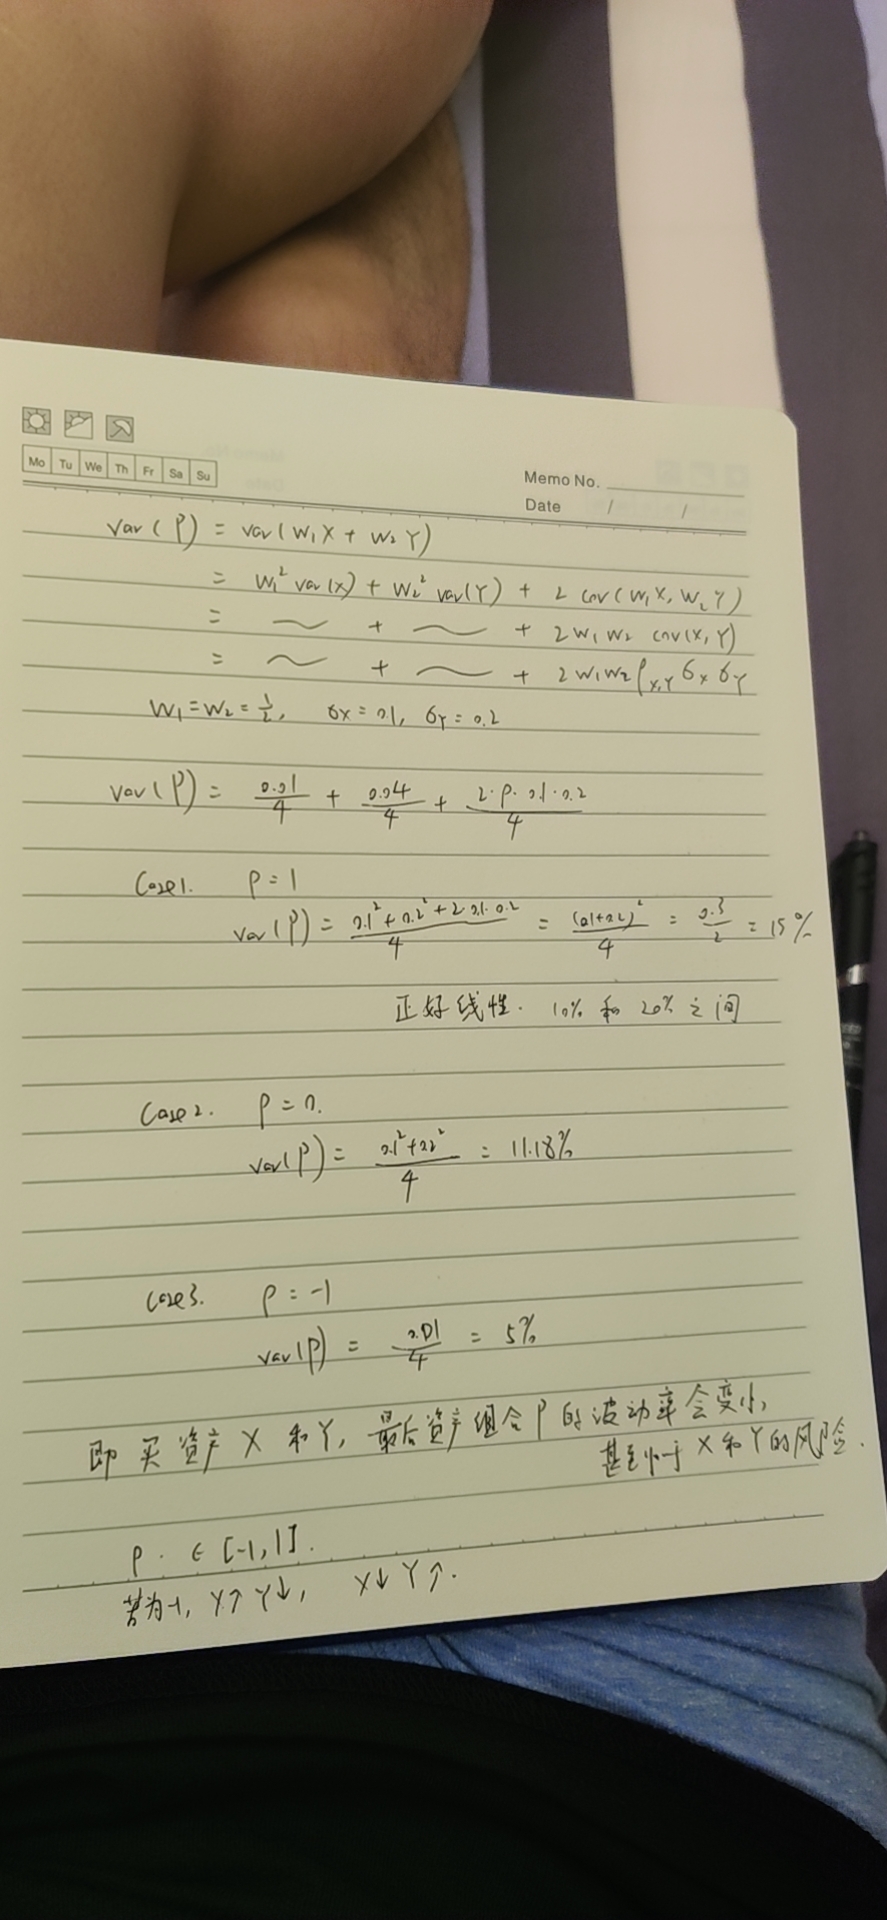 Mo Tu We Th Fr Sa Su
Memo No.
Date / /
Var(P) = var(W₁X + W₂Y)
= W₁² var(X) + W₂² var(Y) + 2 cov(W₁X, W₂Y)
= ～ + ～ + 2W₁W₂ cov(X,Y)
= ～ + ～ + 2W₁W₂ρx,y σx σY
W₁=W₂=1/2, σx=0.1, σY=0.2
Var(P) = 0.01/4 + 0.04/4 + 2·ρ·0.1·0.2/4
Case1. ρ=1
Var(P) = 0.1²+0.2²+2·0.1·0.2/4 = (0.1+0.2)²/4 = 0.3/2 = 15%
正好线性. 10% 和 20% 之间
Case2. ρ=0.
var(P) = 0.1²+0.2²/4 = 11.18%
Case3. ρ=-1
var(P) = 0.01/4 = 5%
即买资产 X 和 Y, 最后资产组合 P 的波动率会变小,
甚至小于 X 和 Y 的风险.
ρ. ∈ [-1,1].
若为-1, Y↑ Y↓, X↓ Y↑.